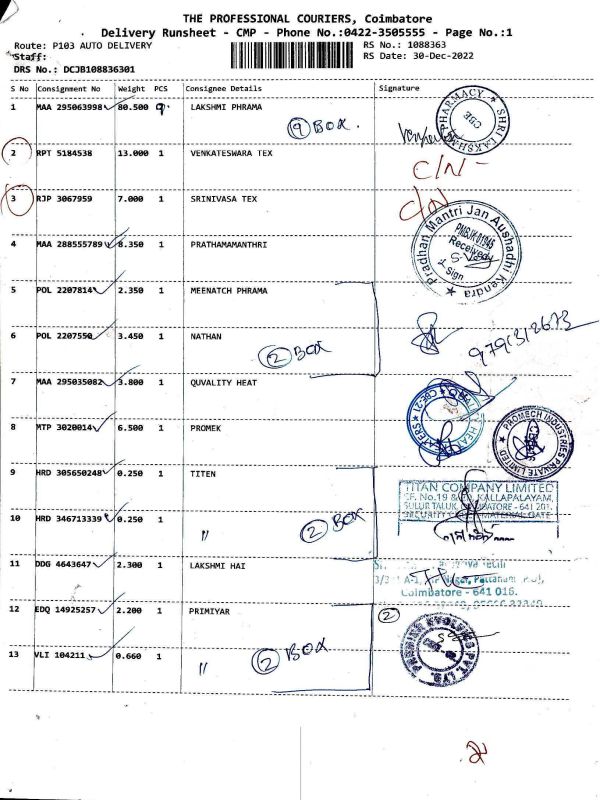 THE PROFESSIONAL COURIERS, Coimbatore
Delivery Runsheet - CMP - Phone No.:0422-3505555 - Page No.:1
Route: P103 AUTO DELIVERY
RS No.: 1088363
Staff:
RS Date: 30-Dec-2022
DRS No.: DCJB108836301
S No Consignment No Weight PCS Consignee Details Signature
1 MAA 295063998 80.500 9 LAKSHMI PHRAMA
9 BOX
SHRI LAKSHMI PHARMACY
CBE
2 RPT 5184538 13.000 1 VENKATESWARA TEX
C/N
3 RJP 3067959 7.000 1 SRINIVASA TEX
C/N
4 MAA 288555789 8.350 1 PRATHAMAMANTHRI
Pradhan Mantri Jan Aushadhi Kendra
PMBJK 01045
Received
Sign
5 POL 2207814 2.350 1 MEENATCH PHRAMA
6 POL 2207550 3.450 1 NATHAN
2 BOX
7 MAA 295035082 3.800 1 QUVALITY HEAT
8 MTP 3020014 6.500 1 PROMEK
PROMECH INDUSTRIES PRIVATE LIMITED
9 HRD 305650248 0.250 1 TITEN
TITAN COMPANY LIMITED
KALLAPALAYAM,
SULUR TALUK, COIMBATORE - 641 201.
10 HRD 346713339 0.250 1 〃
2 BOX
11 DDG 4643647 2.300 1 LAKSHMI HAI
Nagar, Pattanam
Coimbatore - 641 016.
12 EDQ 14925257 2.200 1 PRIMIYAR
2
13 VLI 104211 0.660 1 〃
2 BOX
PREMIER EVOLVICS PVT. LTD.